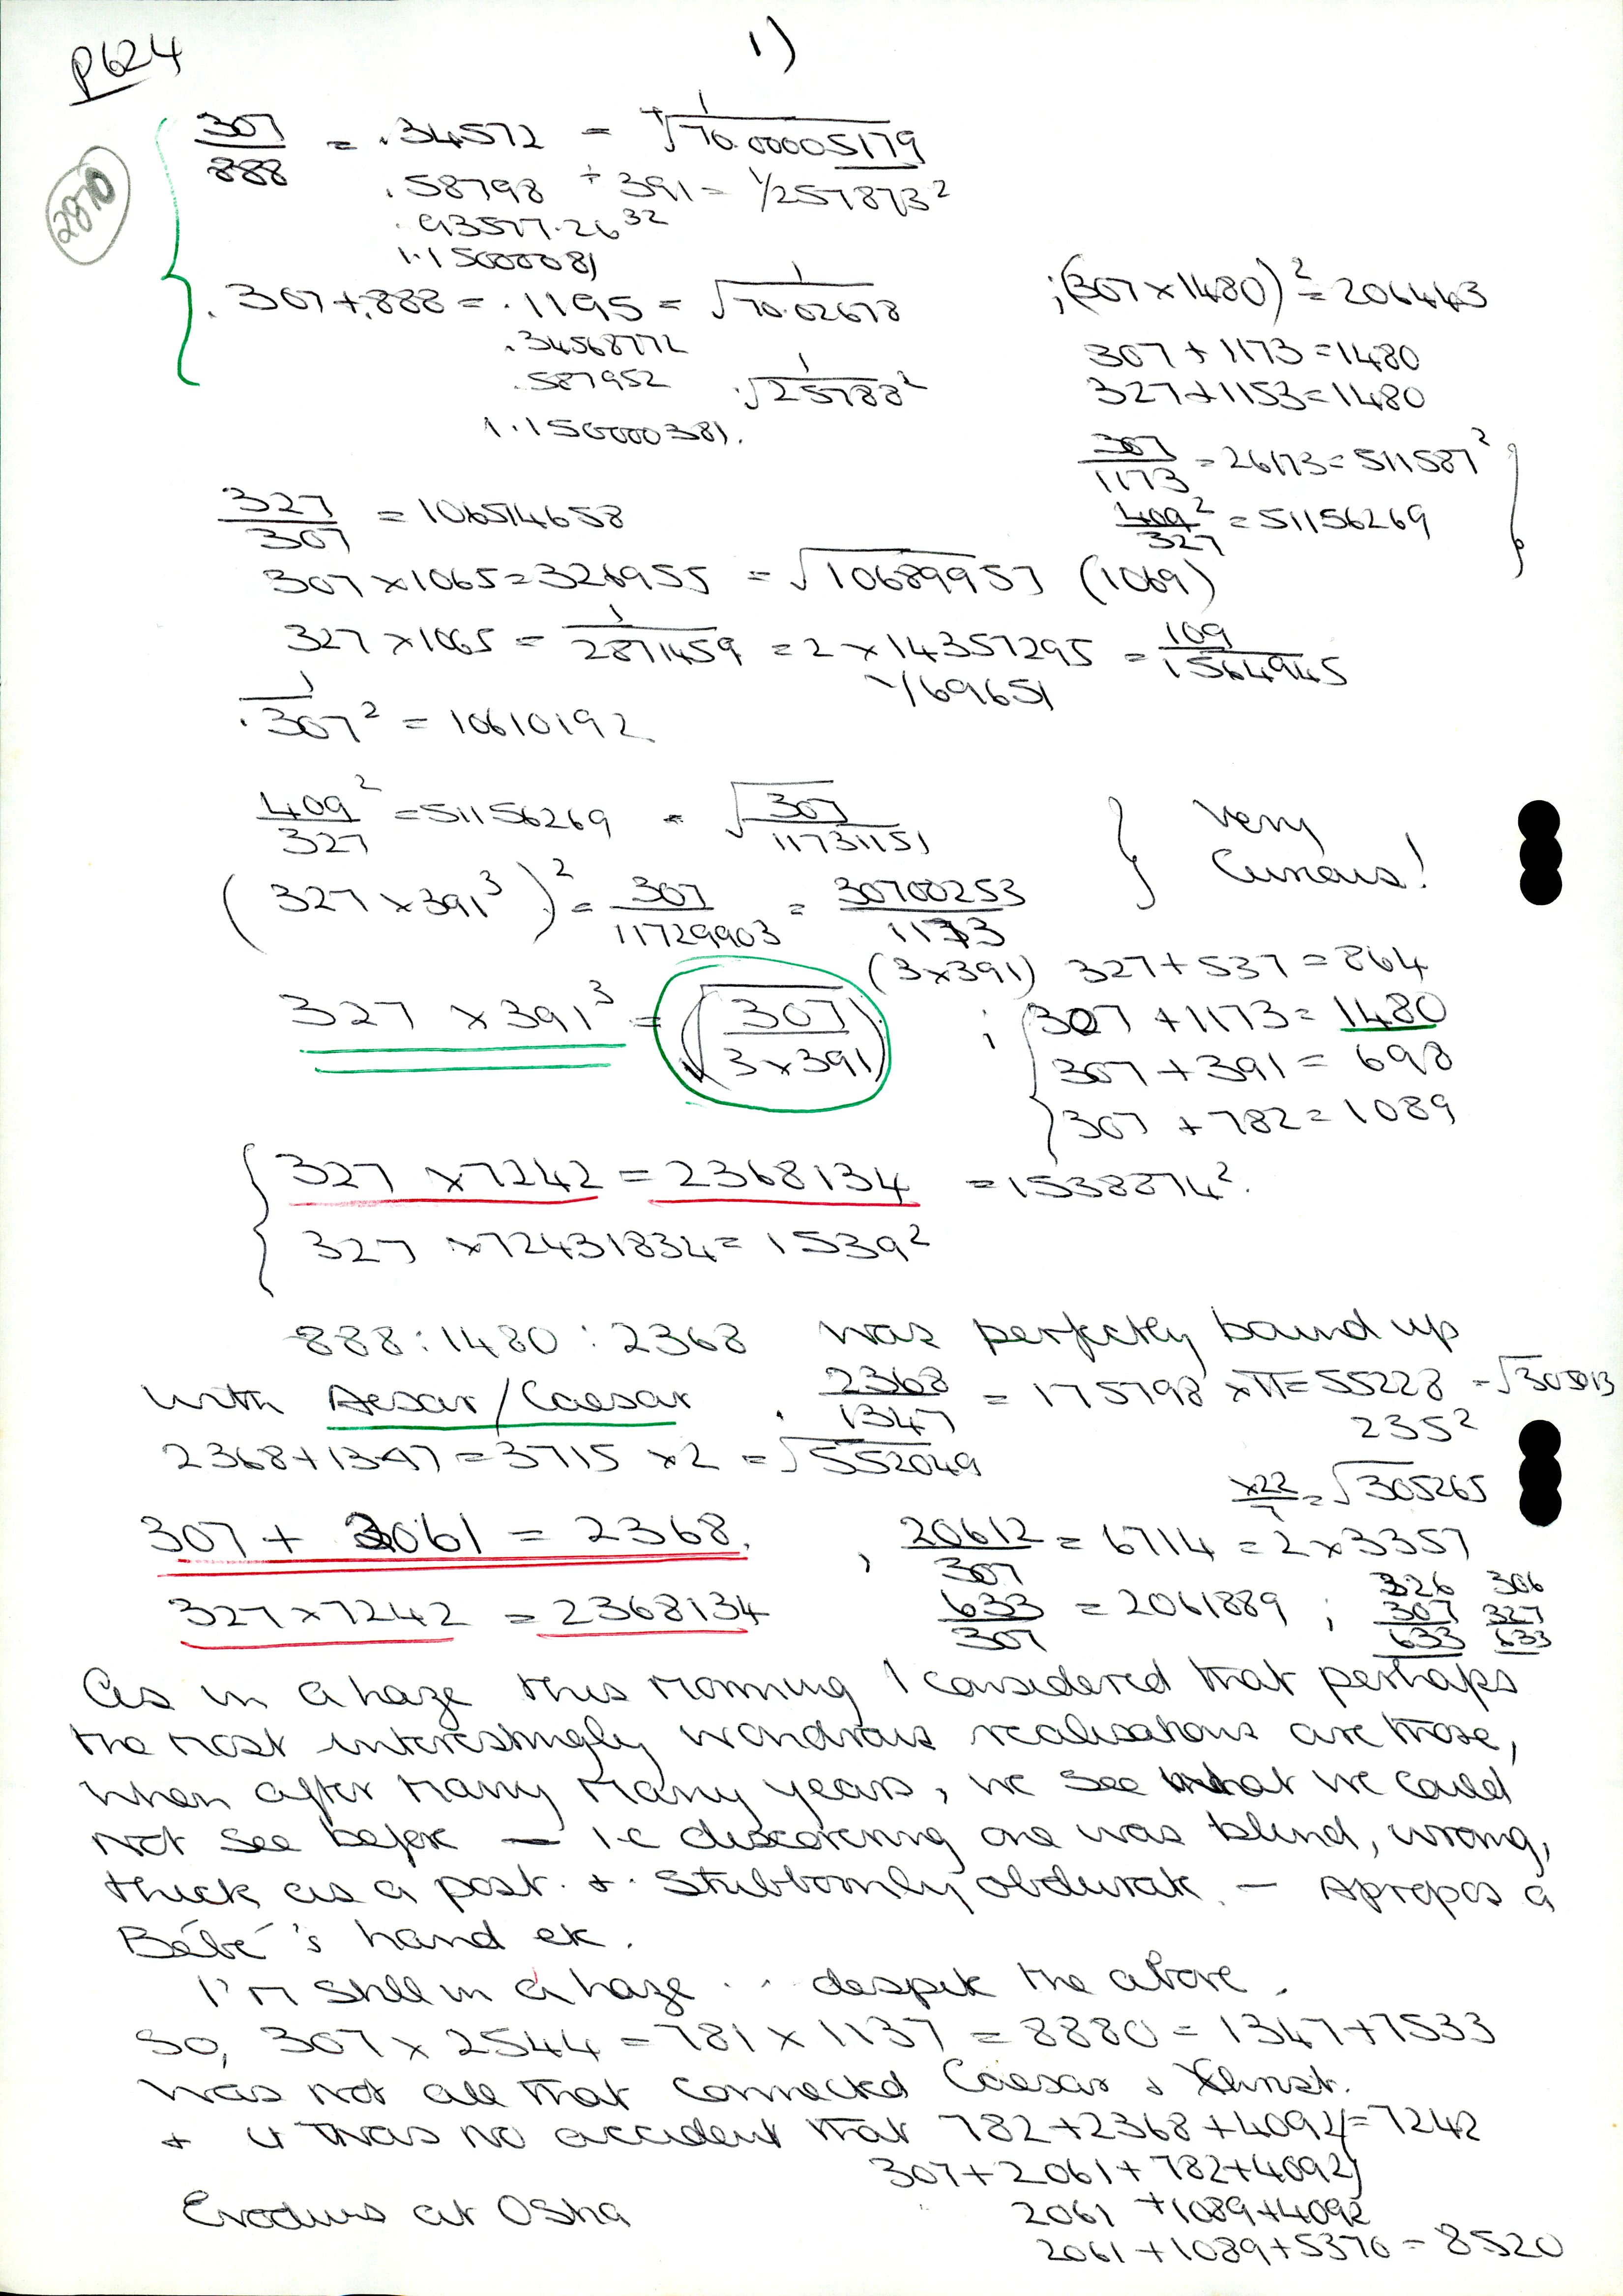 P624
1)
2870
307/888 = .34572 = 1/√70.00005179
.58798 ÷ 391 = 1/257873²
.93577.26³²
1.15000081
.307+.888 = .1195 = 1/√70.02678
.34568772
.587952 1/√25788²
1.150000381.
;(307×1480)² = 206443
307 + 1173 = 1480
327 + 1153 = 1480
307/1173 = 26173 = 511587²
409²/327 = 51156269
327/307 = 106514658
307 × 1065 = 326955 = √10689957 (1069)
327 × 1065 = 1/2871459 = 2 × 14357295 = 109/1564945
169651
1/.307² = 10610192
409²/327 = 51156269 = √307/11731151
Very
Curious!
(327 × 391³)² = 307/11729903 = 30700253/1173
(3×391) 327 + 537 = 864
327 × 391³ = (√307/3×391) ; 307 + 1173 = 1480
307 + 391 = 698
307 + 782 = 1089
327 × 7242 = 2368134 = 1538874².
327 × 72431834 = 1539²
888 : 1480 : 2368 was perfectly bound up
with Aesar/Caesar . 2368/1347 = 175798 × π = 55228 = √305013
235²
2368 + 1347 = 3715 × 2 = √552049
×22/7 = √305265
307 + 2061 = 2368. , 20612/307 = 6714 = 2 × 3357
327 × 7242 = 2368134 633/307 = 2061889 ; 326 306
307 327
633 633
As in a haze this morning I considered that perhaps
the most interestingly wondrous realisations are those,
when after many many years, we see what we could
not see before — i.e discovering one was blind, wrong,
thick as a post. & stubbornly obdurate. — Apropos a
Bébé's hand etc.
I'm still in a haze .. despite the above.
So, 307 × 2544 = 781 × 1137 = 8880 = 1347 + 7533
was not all that connected Caesar & Xhrist.
& it was no accident that 782 + 2368 + 4092 = 7242
307 + 2061 + 782 + 4092
Exodus at Osha 2061 + 1089 + 4092
2061 + 1089 + 5370 = 8520